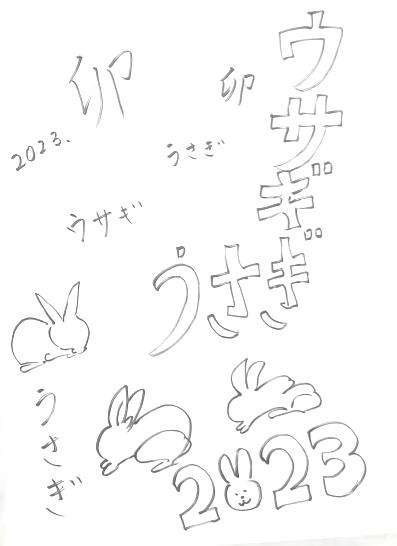 卯
卯
ウサギ
2023.
うさぎ
ウサギ
うさぎ
うさぎ
2023